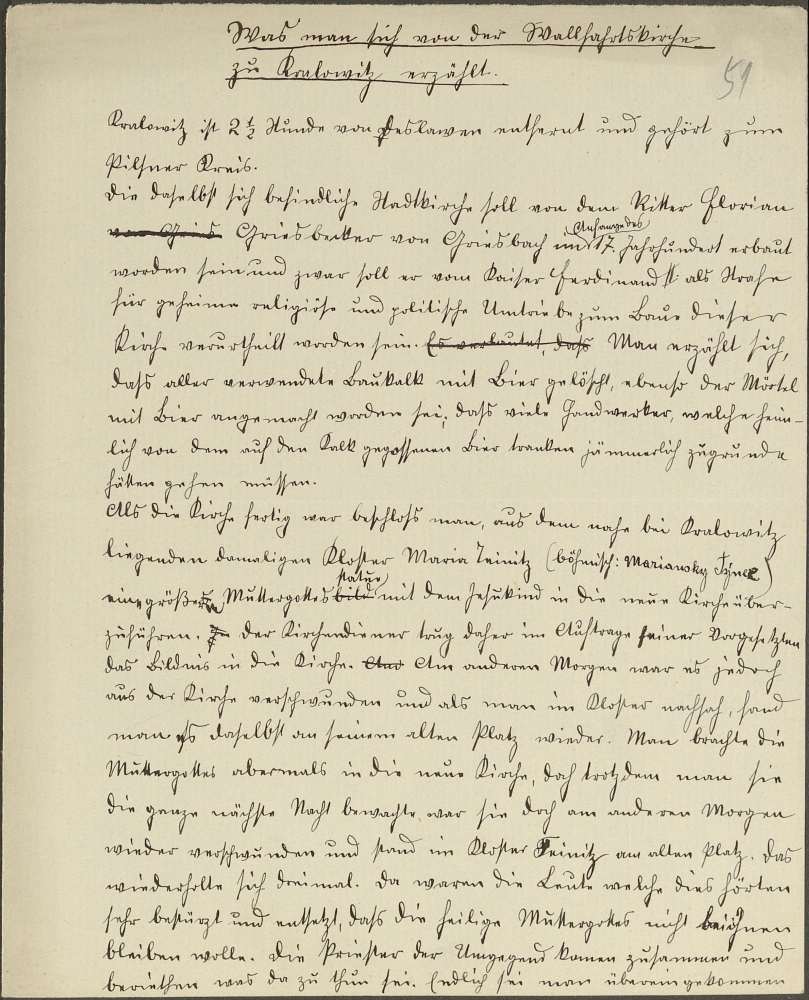 Was man sich von der Wallfahrtskirche
zu Kralowitz erzählt.
51
Kralowitz ist 2 1/2 Stunde von Heslawen entfernt und gehört zum
Pilsner Kreis.
Die daselbst sich befindliche Stadtkirche soll von dem Ritter Florian
von Gries Griesbecker von Griesbach im Anfange des 17. Jahrhundert erbaut
worden sein und zwar soll er vom Kaiser Ferdinand II als Strafe
für geheime religiöse und politische Umtriebe zum Baue dieser
Kirche verurtheilt worden sein. Es verlautet, daß Man erzählt sich,
daß aller verwendete Baukalk mit Bier gelöscht, ebenso der Mörtel
mit Bier angemacht worden sei, daß viele Handwerker, welche heim-
lich von dem auf den Kalk gegossenen Bier tranken jämmerlich zugrunde
hätten gehen müssen.
Als die Kirche fertig war beschloß man, aus dem nahe bei Kralowitz
liegenden damaligen Kloster Maria Teinitz (böhmisch: Mariansky Týnec)
eine größere Muttergottesbild statue mit dem Jesukind in die neue Kirche über-
zuführen. Der Kirchendiener trug daher im Auftrage seiner Vorgesetzten
das Bildnis in die Kirche. Am anderen Morgen war es jedoch
aus der Kirche verschwunden und als man im Kloster nachsah, fand
man es daselbst an seinem alten Platz wieder. Man brachte die
Muttergottes abermals in die neue Kirche, doch trotzdem man sie
die ganze nächste Nacht bewachte, war sie doch am anderen Morgen
wieder verschwunden und stand im Kloster Teinitz am alten Platz. Das
wiederholte sich dreimal. Da waren die Leute welche dies hörten
sehr bestürzt und entsetzt, daß die heilige Muttergottes nicht bei ihnen
bleiben wolle. Die Priester der Umgegend kamen zusammen und
beriethen was da zu thun sei. Endlich sei man übereingekommen